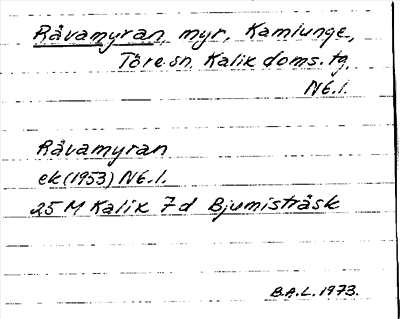 Råvamyran, myr, Kamlunge,
Töre sn. Kalix doms. tg.
Nb.l.
Råvamyran
ek (1953) Nb.l.
25 M Kalix 7d Bjumisträsk
B.A.L. 1973.